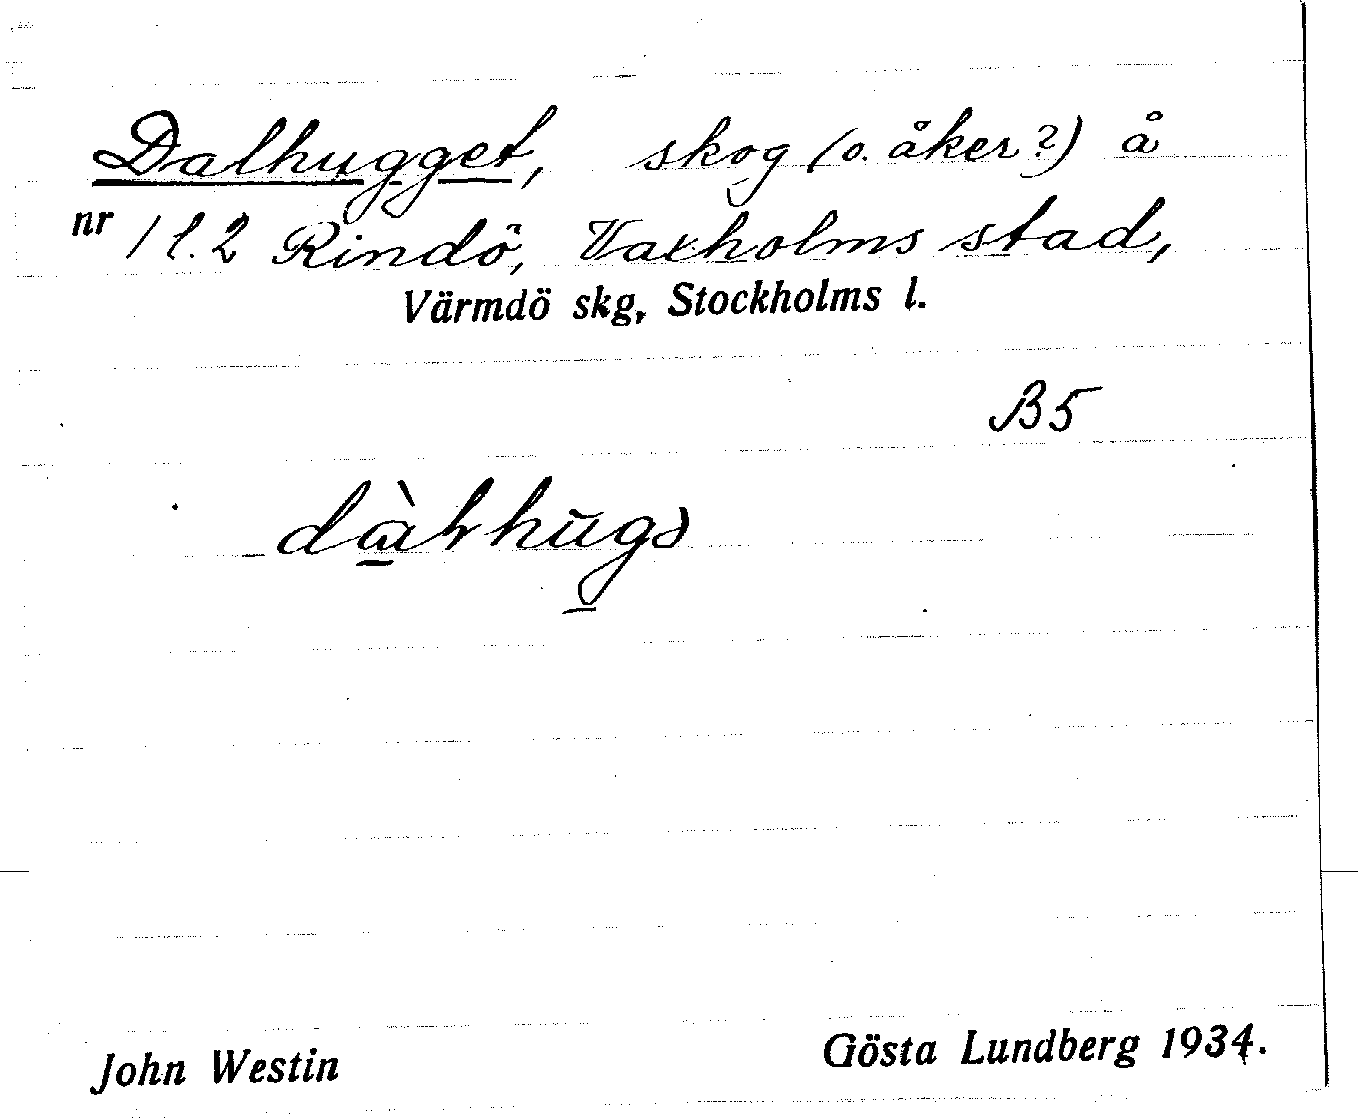 Dalhugget, skog (o. åker?) å
nr 1 l. 2 Rindö, Vaxholms stad,
Värmdö skg, Stockholms l.
B5
John Westin
Gösta Lundberg 1934.